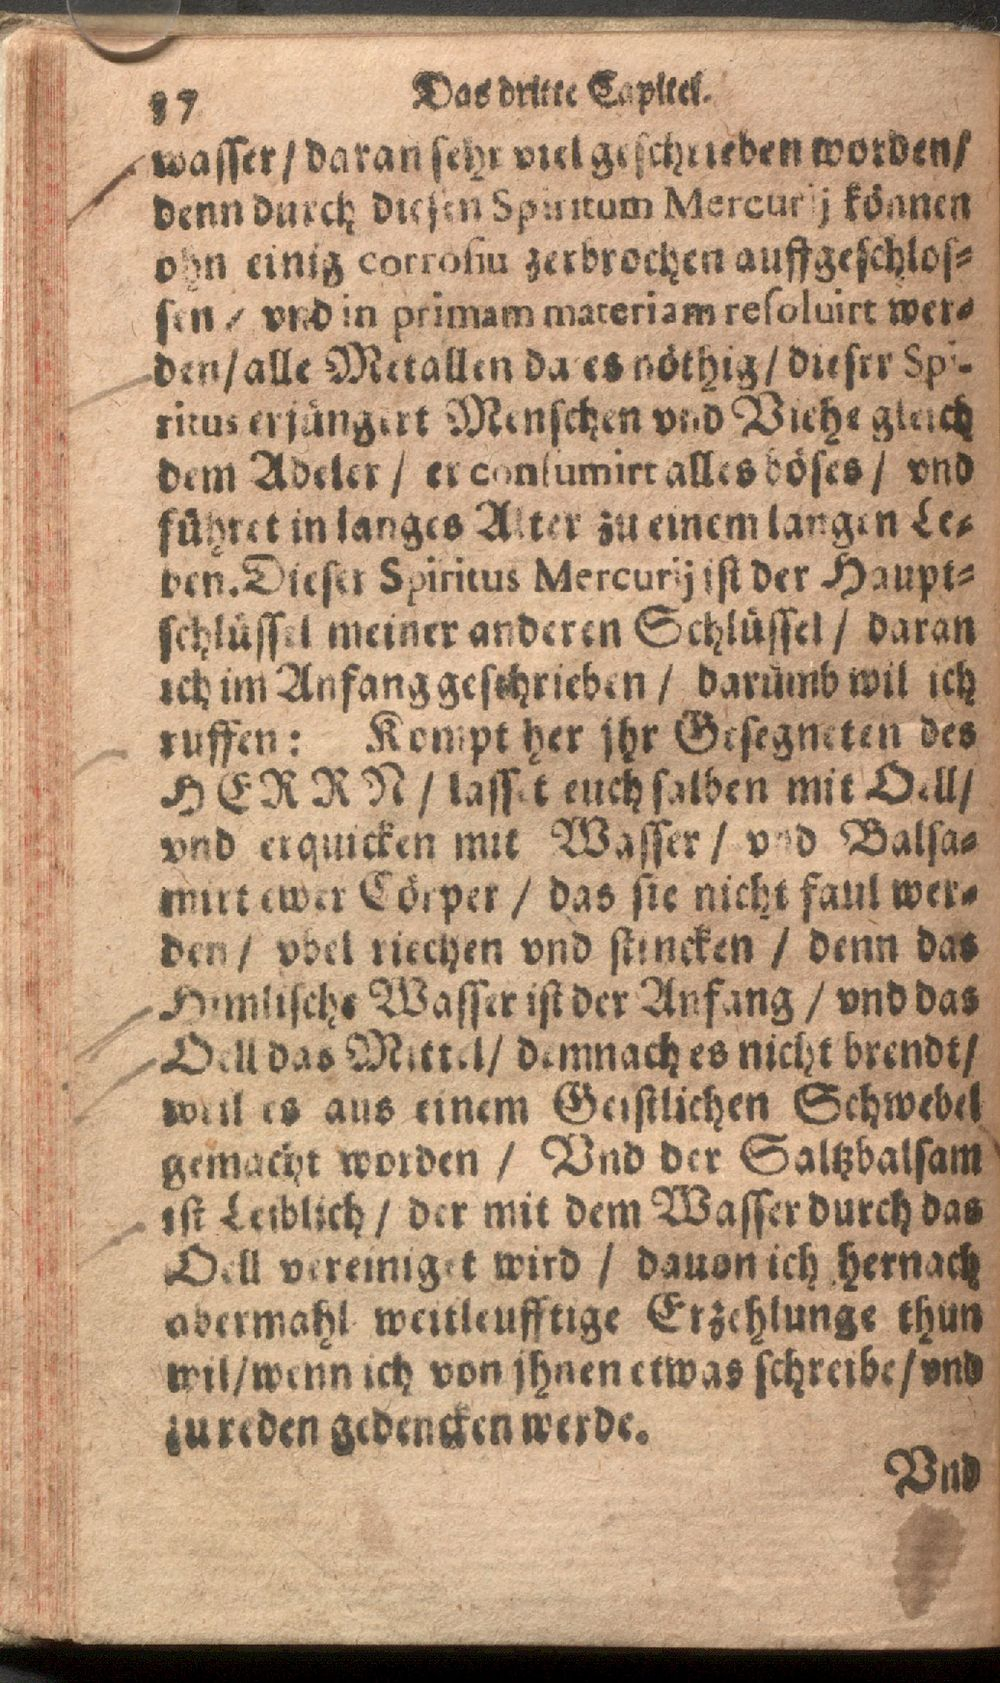 87 Das dritte Capitel.
wasser / daran sehr viel geschrieben worden /
denn durch diesen Spiritum Mercurij können
ohn einig corrosiu zerbrochen auffgeschlos=
sen / vnd in primam materiam resoluirt wer=
den / alle Metallen da es nöthig / dieser Spi-
ritus erjüngert Menschen vnd Viehe gleich
dem Adeler / er consumirt alles böses / vnd
führet in langes Alter zu einem langen Le=
ben. Dieser Spiritus Mercurij ist der Haupt=
schlüssel meiner anderen Schlüssel / daran
ich im Anfang geschrieben / darümb wil ich
ruffen: Kompt her jhr Gesegneten des
HERRN / lasset euch salben mit Oell /
vnd erquicken mit Wasser / vnd Balsa=
mirt ewer Cörper / das sie nicht faul wer=
den / vbel riechen vnd stincken / denn das
Himlische Wasser ist der Anfang / vnd das
Oell das Mittel / demnach es nicht brendt /
weil es aus einem Geistlichen Schwebel
gemacht worden / Vnd der Saltzbalsam
ist Leiblich / der mit dem Wasser durch das
Oell vereiniget wird / dauon ich hernach
abermahl weitleufftige Erzehlunge thun
wil / wenn ich von jhnen etwas schreibe / vnd
zu reden gedencken werde.
Vnd